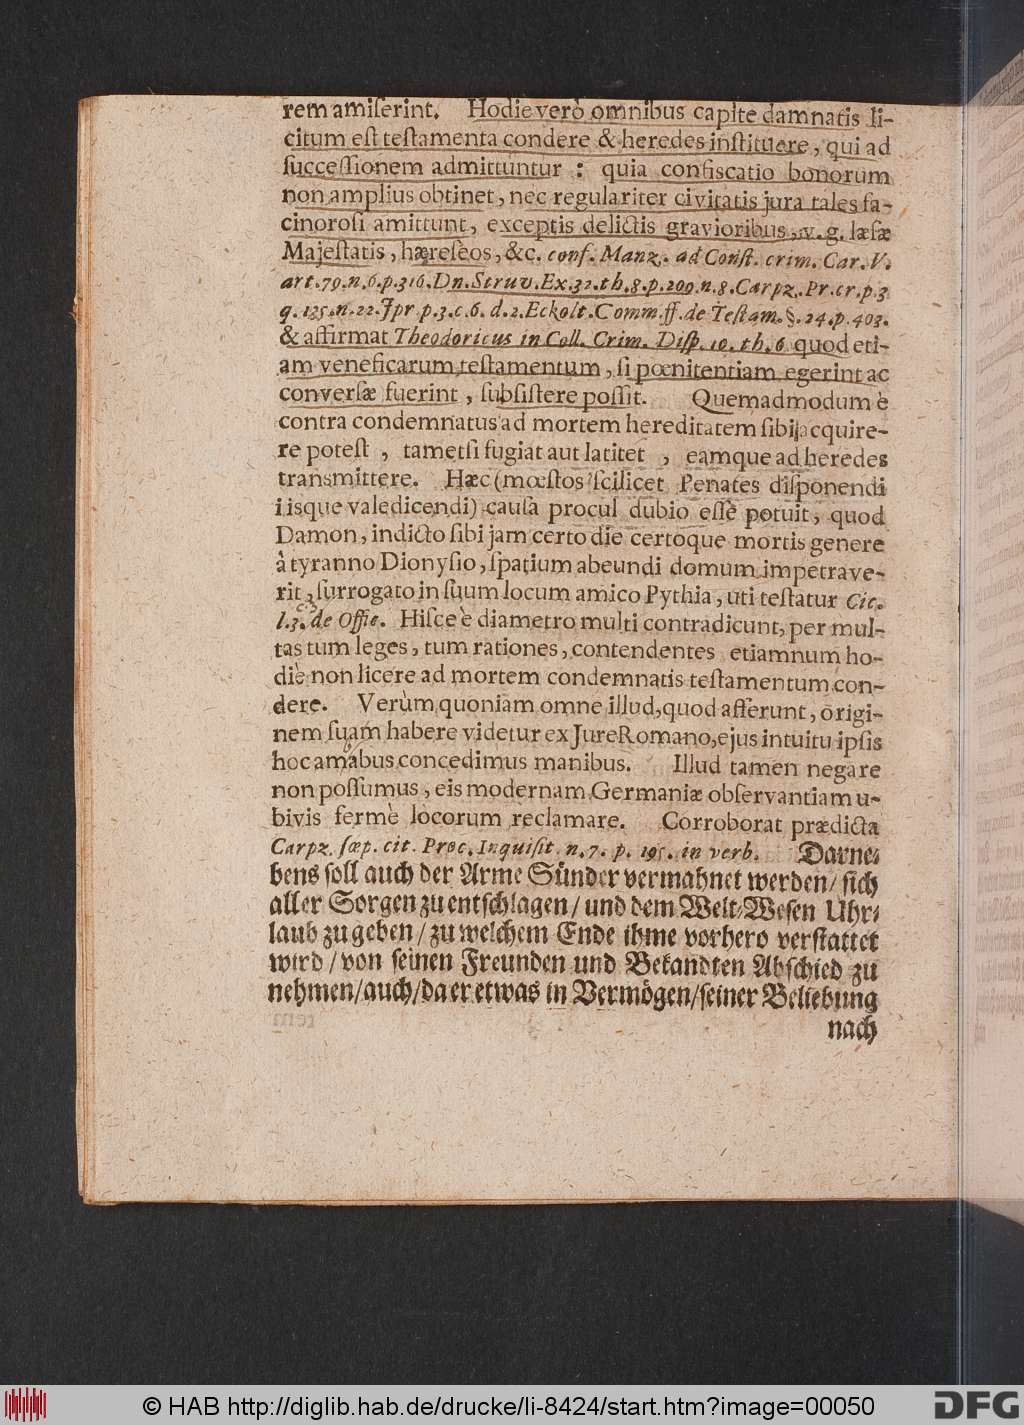 rem amiſerint. Hodie verò omnibus capite damnatis li-
citum eſt teſtamenta condere & heredes inſtituere, qui ad
ſucceſſionem admittuntur : quia confiscatio bonorum
non amplius obtinet, nec regulariter civitatis jura tales fa-
cinoroſi amittunt, exceptis delictis gravioribus, v. g. læſæ
Majeſtatis, hæreſèos, &c. conf. Manz. ad Conſt. crim. Car. V.
art. 79. n. 6. p. 316. Dn. Struv. Ex. 32. th. 8. p. 209. n. 8. Carpz. Pr. cr. p. 3
q. 135. n. 22. Jpr p. 3. c. 6. d. 2. Eckolt. Comm. ff. de Teſtam. §. 24. p. 403.
& affirmat Theodoricus in Coll. Crim. Diſp. 10. th. 6 quod eti-
am veneficarum teſtamentum, ſi pœnitentiam egerint ac
converſæ fuerint, ſubſiſtere poſſit. Quemadmodum è
contra condemnatus ad mortem hereditatem ſibi acquire-
re poteſt, tametſi fugiat aut latitet, eamque ad heredes
transmittere. Hæc (mœſtos ſcilicet Penates diſponendi
iisque valedicendi) cauſa procul dubio eſſe potuit, quod
Damon, indicto ſibi jam certo die certoque mortis genere
à tyranno Dionyſio, ſpatium abeundi domum impetrave-
rit, ſurrogato in ſuum locum amico Pythia, uti teſtatur Cic.
l. 3. de Offic. Hiſce è diametro multi contradicunt, per mul-
tas tum leges, tum rationes, contendentes etiamnum ho-
diè non licere ad mortem condemnatis teſtamentum con-
dere. Verùm quoniam omne illud, quod afferunt, origi-
nem ſuam habere videtur ex Jure Romano, ejus intuitu ipſis
hoc amabus concedimus manibus. Illud tamen negare
non poſſumus, eis modernam Germaniæ obſervantiam u-
bivis fermè locorum reclamare. Corroborat prædicta
Carpz. ſæp. cit. Proc. Inquiſit. n. 7. p. 195. in verb. Darne-
bens ſoll auch der Arme Sünder vermahnet werden / ſich
aller Sorgen zu entſchlagen / und dem Welt-Weſen Uhr-
laub zu geben / zu welchem Ende ihme vorhero verſtattet
wird / von ſeinen Freunden und Bekandten Abſchied zu
nehmen / auch / da er etwas in Vermögen / ſeiner Beliebung
nach
© HAB http://diglib.hab.de/drucke/li-8424/start.htm?image=00050
DFG